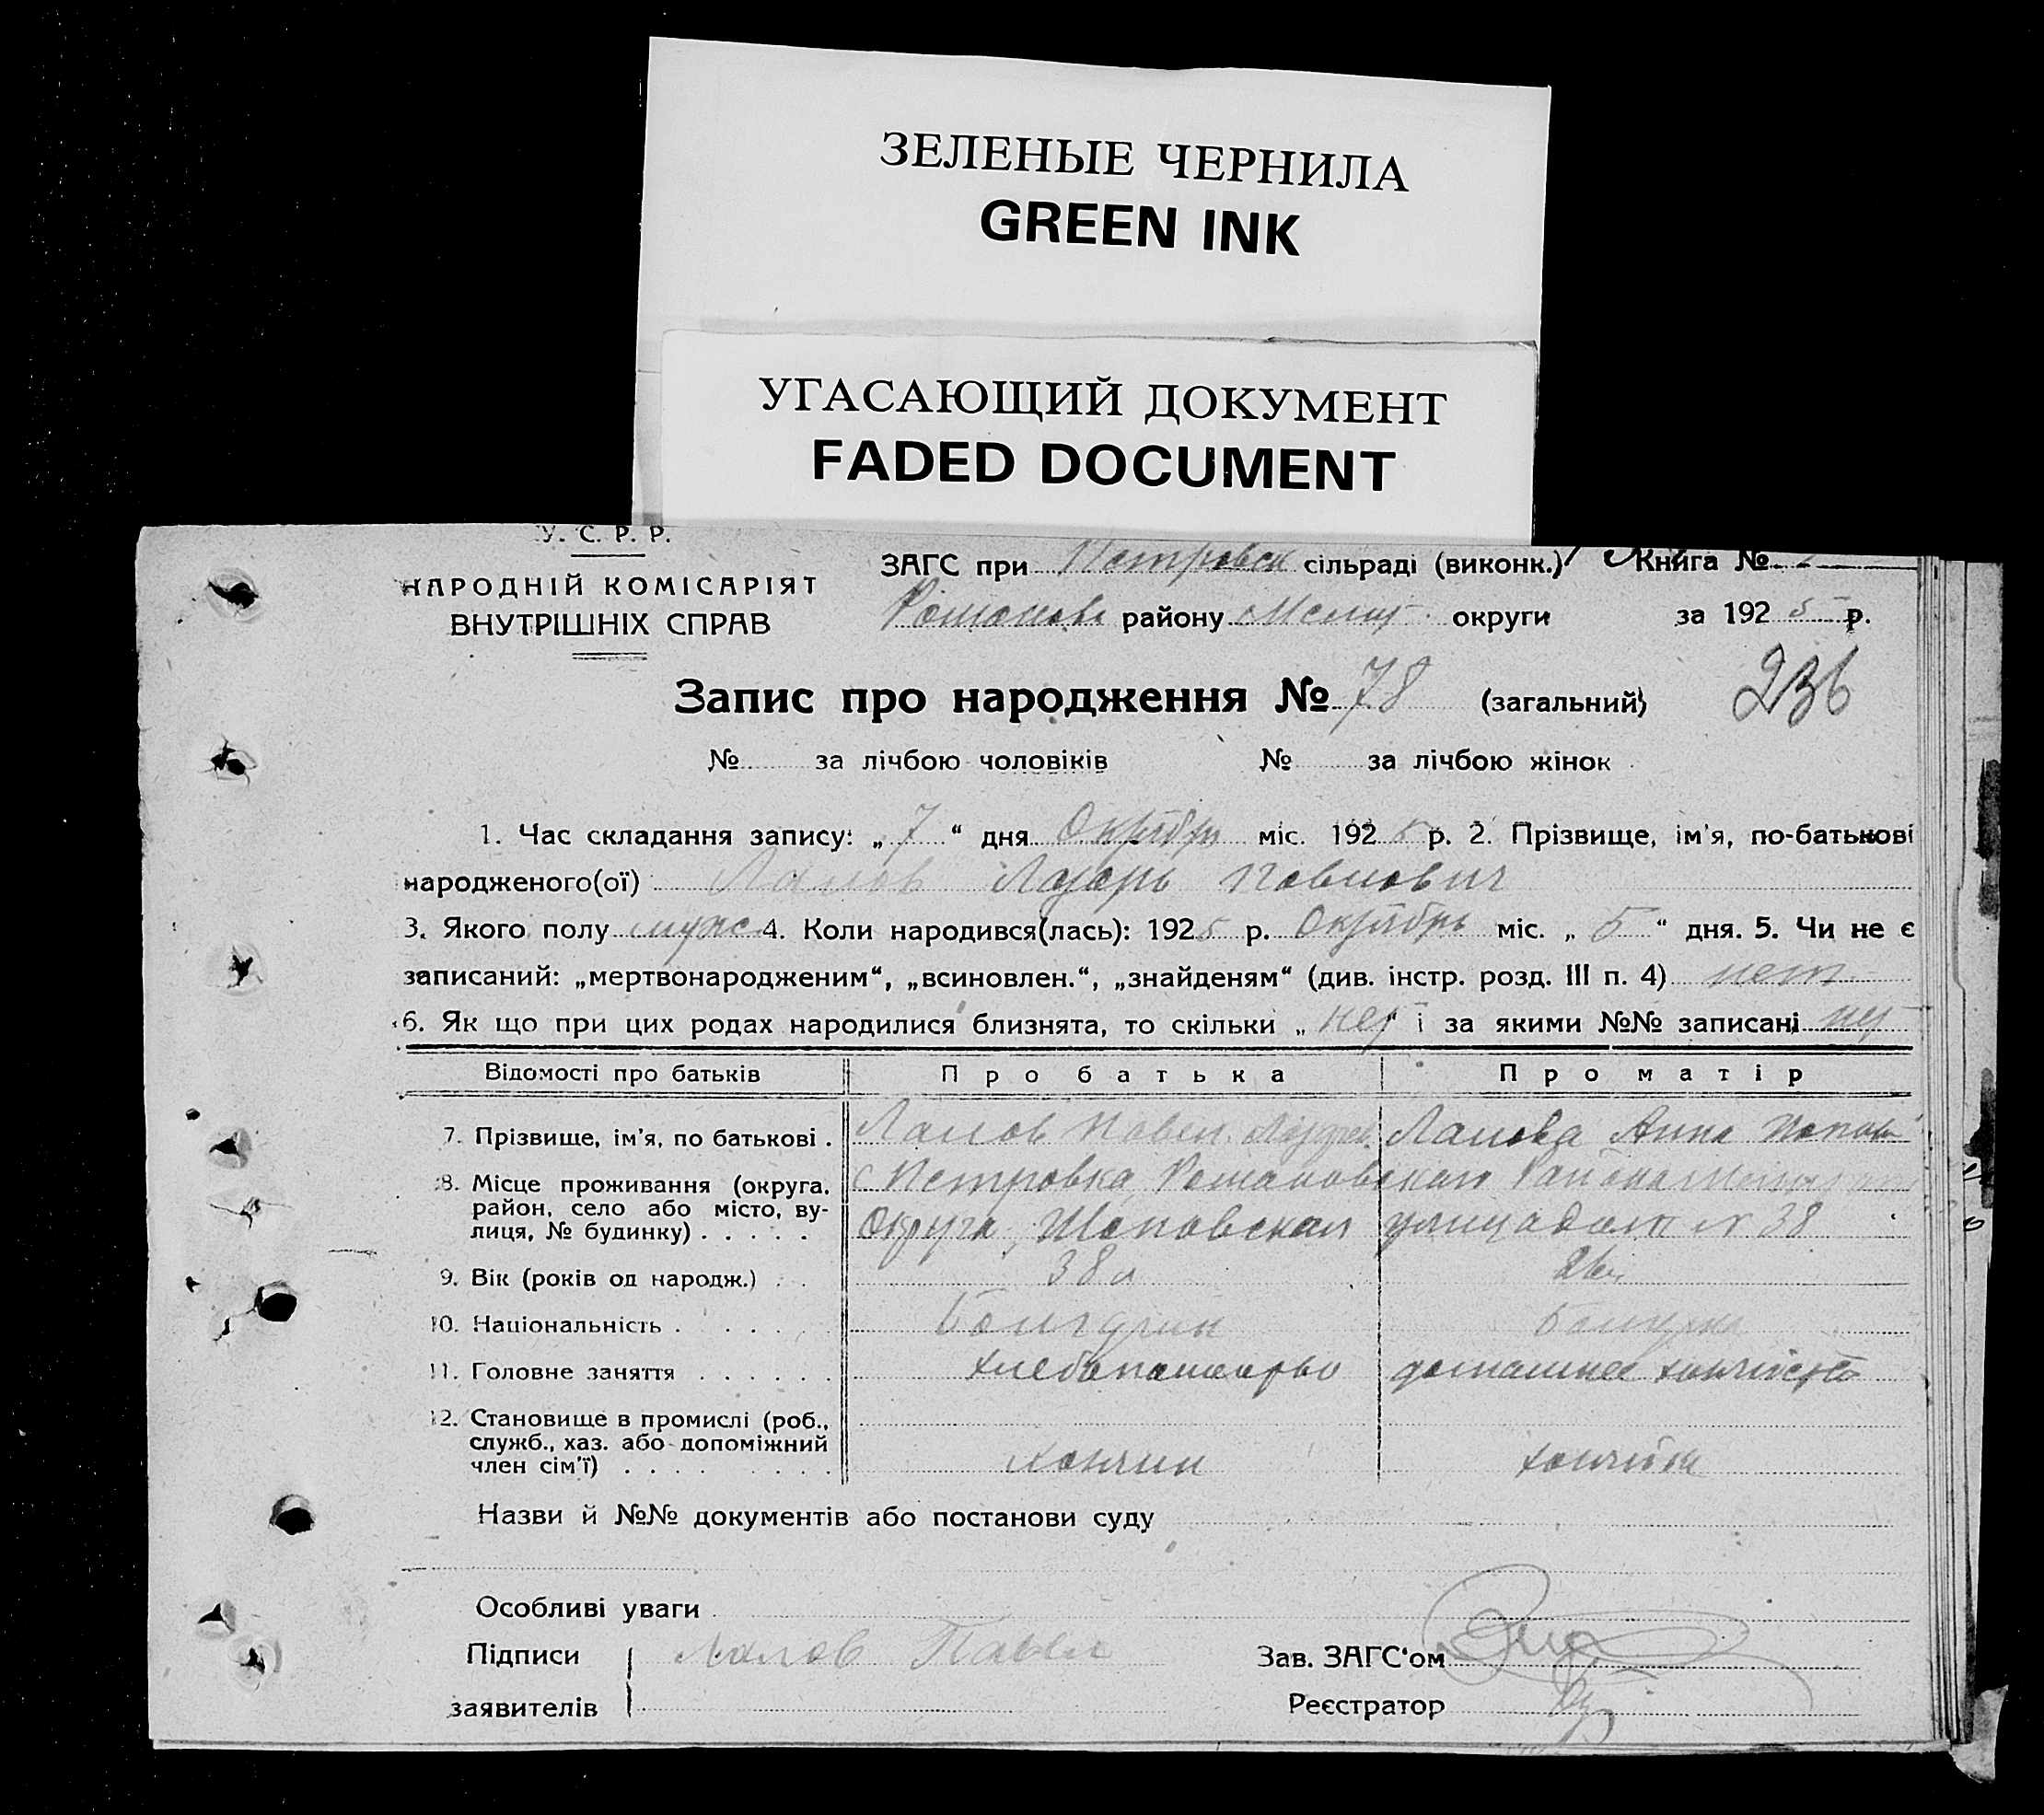 ЗЕЛЕНЫЕ ЧЕРНИЛА
GREEN INK
УГАСАЮЩИЙ ДОКУМЕНТ
FADED DOCUMENT
У. С. Р. Р.
НАРОДНІЙ КОМІСАРІЯТ
ВНУТРІШНІХ СПРАВ
ЗАГС при Петровск сільраді (виконк.) Книга №
району Мелит. округи за 1925 р.
Запис про народження № 78 (загальний) 236
№ за лічбою чоловіків № за лічбою жінок
1. Час складання запису: „ 7 “ дня Октября міс. 1925 р. 2. Прізвище, ім'я, по-батькові
народженого(ої) Лалов Лазарь Павлович
3. Якого полу муж 4. Коли народився(лась): 1925 р. Октябрь міс. „ 5 “ дня. 5. Чи не є
записаний: „мертвонародженим“, „всиновлен.“, „знайденям“ (див. інстр. розд. III п. 4) нет
6. Як що при цих родах народилися близнята, то скільки „ нет “ і за якими №№ записані нет
Відомості про батьків Про батька Про матір
7. Прізвище, ім'я, по батькові . Лалов Павел Лалова Анна
8. Місце проживання (округа, район, село або місто, ву-лиця, № будинку) . . . . . с Петровка Романовского Района
Округа, Шоповская улица дом № 38
9. Вік (років од народж.) . . 38 л 26 л
10. Національність . . . . . Болгарин Болгарка
11. Головне заняття . . . . . . хлебопашество домашнее хозяйство
12. Становище в промислі (роб., служб., хаз. або допоміжний член сім'ї) . . . . . . . . хозяин хозяйка
Назви й №№ документів або постанови суду
Особливі уваги
Підписи заявителів Лалов Павел
Зав. ЗАГС'ом
Реєстратор